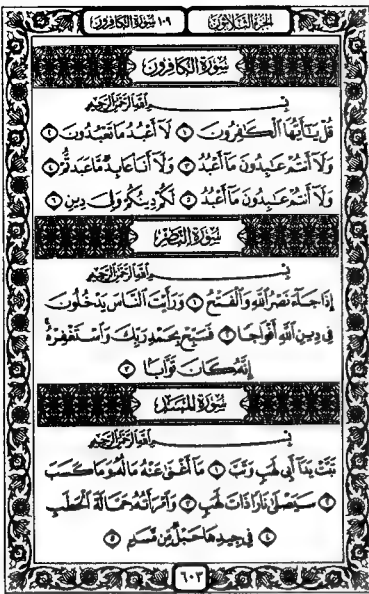 الجزء الثلاثون
١٠٩ سورة الكافرون
سورة الكافرون
بسم الله الرحمن الرحيم
قُلْ يَٰٓأَيُّهَا ٱلْكَٰفِرُونَ ١ لَآ أَعْبُدُ مَا تَعْبُدُونَ ٢
وَلَآ أَنتُمْ عَٰبِدُونَ مَآ أَعْبُدُ ٣ وَلَآ أَنَا۠ عَابِدٌ مَّا عَبَدتُّمْ ٤
وَلَآ أَنتُمْ عَٰبِدُونَ مَآ أَعْبُدُ ٥ لَكُمْ دِينُكُمْ وَلِىَ دِينِ ٦
سورة النصر
بسم الله الرحمن الرحيم
إِذَا جَآءَ نَصْرُ ٱللَّهِ وَٱلْفَتْحُ ١ وَرَأَيْتَ ٱلنَّاسَ يَدْخُلُونَ
فِى دِينِ ٱللَّهِ أَفْوَاجًا ٢ فَسَبِّحْ بِحَمْدِ رَبِّكَ وَٱسْتَغْفِرْهُ
إِنَّهُۥ كَانَ تَوَّابًۢا ٣
سورة المسد
بسم الله الرحمن الرحيم
تَبَّتْ يَدَآ أَبِى لَهَبٍ وَتَبَّ ١ مَآ أَغْنَىٰ عَنْهُ مَالُهُۥ وَمَا كَسَبَ
٢ سَيَصْلَىٰ نَارًا ذَاتَ لَهَبٍ ٣ وَٱمْرَأَتُهُۥ حَمَّالَةَ ٱلْحَطَبِ
٤ فِى جِيدِهَا حَبْلٌ مِّن مَّسَدٍۭ ٥
٦٠٣